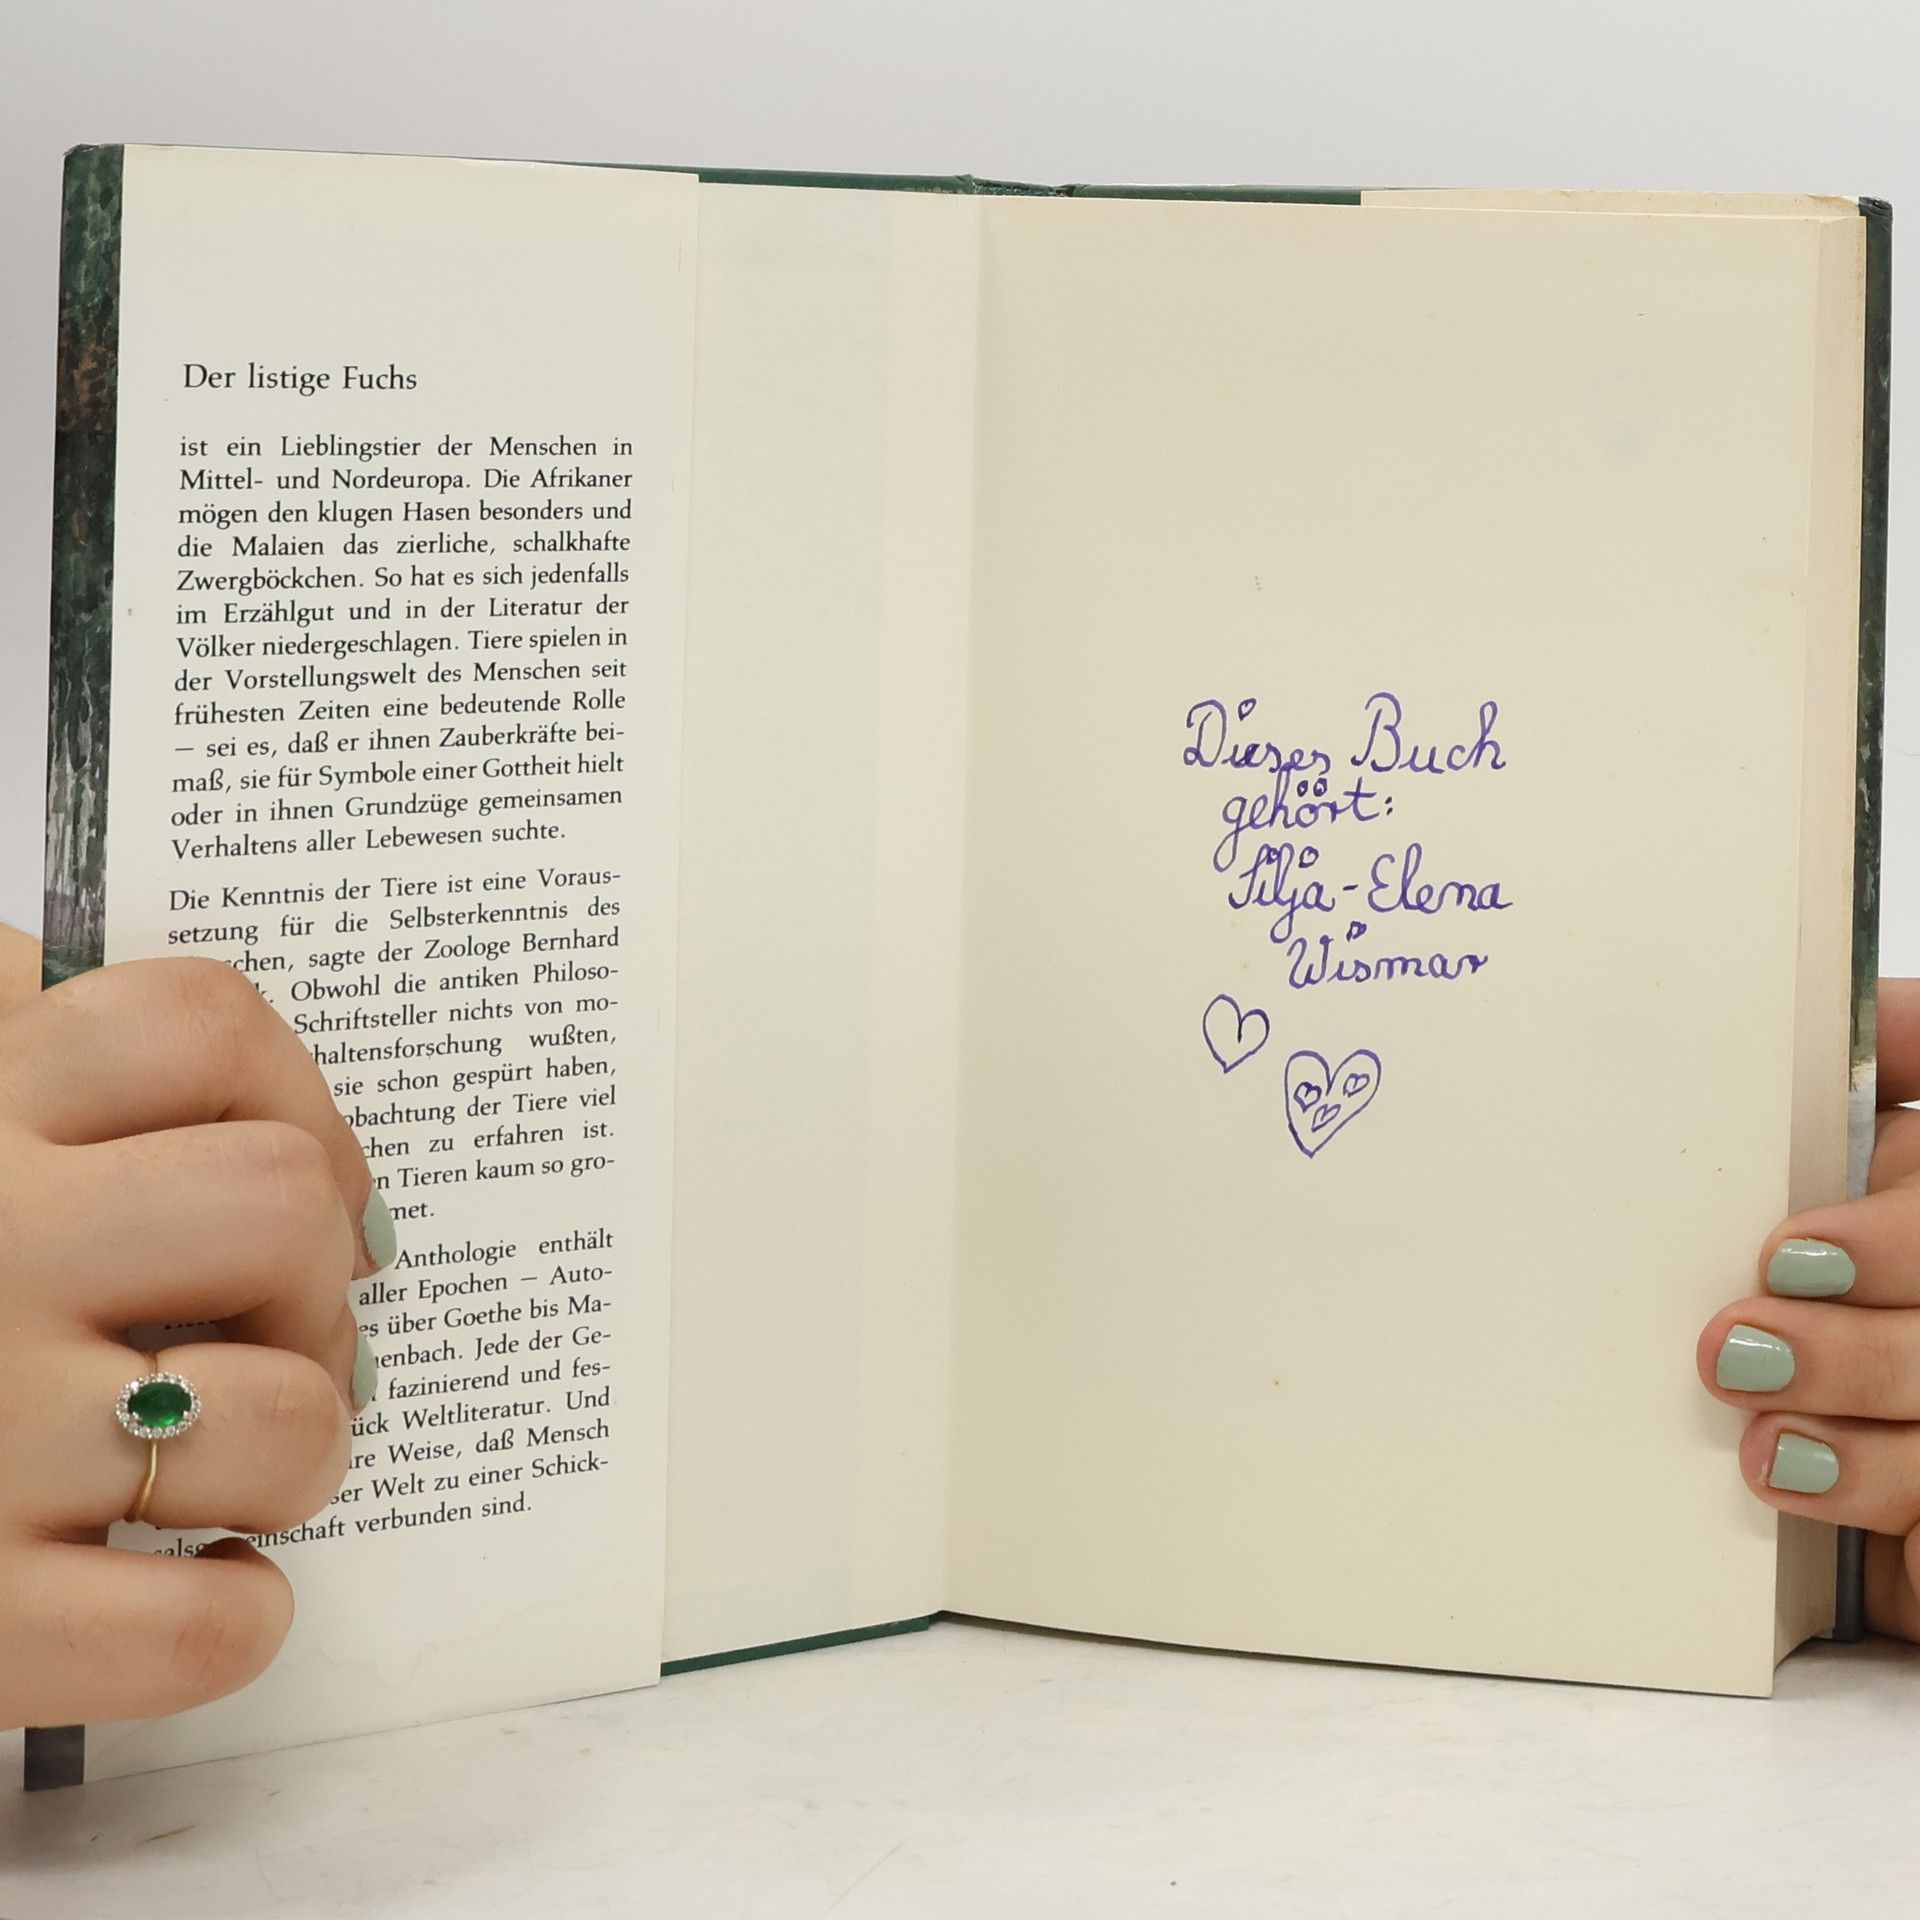 Der listige Fuchs
ist ein Lieblingstier der Menschen in
Mittel- und Nordeuropa. Die Afrikaner
mögen den klugen Hasen besonders und
die Malaien das zierliche, schalkhafte
Zwergböckchen. So hat es sich jedenfalls
im Erzählgut und in der Literatur der
Völker niedergeschlagen. Tiere spielen in
der Vorstellungswelt des Menschen seit
frühesten Zeiten eine bedeutende Rolle
— sei es, daß er ihnen Zauberkräfte bei-
maß, sie für Symbole einer Gottheit hielt
oder in ihnen Grundzüge gemeinsamen
Verhaltens aller Lebewesen suchte.
Die Kenntnis der Tiere ist eine Voraus-
setzung für die Selbsterkenntnis des
schen, sagte der Zoologe Bernhard
k. Obwohl die antiken Philoso-
Schriftsteller nichts von mo-
haltensforschung wußten,
sie schon gespürt haben,
obachtung der Tiere viel
chen zu erfahren ist.
n Tieren kaum so gro-
met.
Anthologie enthält
aller Epochen — Auto-
es über Goethe bis Ma-
enbach. Jede der Ge-
fazinierend und fes-
ück Weltliteratur. Und
re Weise, daß Mensch
ser Welt zu einer Schick-
einschaft verbunden sind.
Dieses Buch
gehört:
Silja-Elena
Wismar